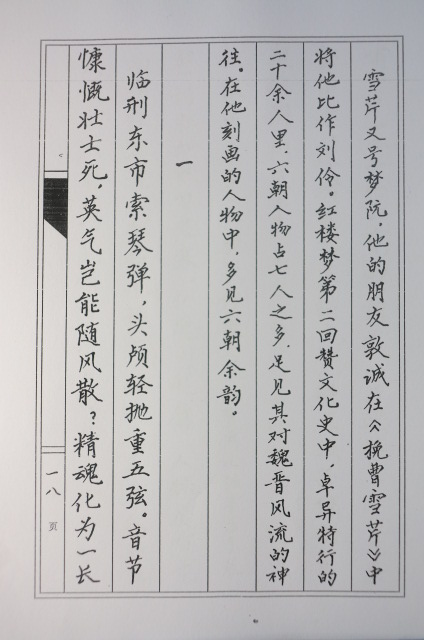 雪芹又号梦阮，他的朋友敦诚在《挽曹雪芹》中
将他比作刘伶。红楼梦第二回赞文化史中，卓异特行的
二十余人里，六朝人物占七人之多，足见其对魏晋风流的神
往。在他刻画的人物中，多见六朝余韵。
一
临刑东市索琴弹，头颅轻抛重五弦。音节
慷慨壮士死，英气岂能随风散？精魂化为一长
一八页